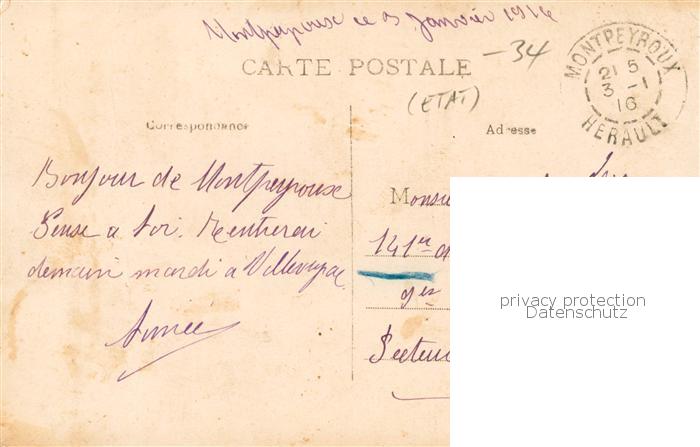 Montpeyroux ce 3 Janvier 1916
-34
CARTE POSTALE
(ETAT)
MONTPEYROUX
21 5
3 -1
16
HERAULT
Correspondance
Adresse
Bonjour de Montpeyroux
Pense a toi. Rentrerai
demain mardi à Villeveyrac
Aimée
Monsieur
141me
Secteur
privacy protection
Datenschutz